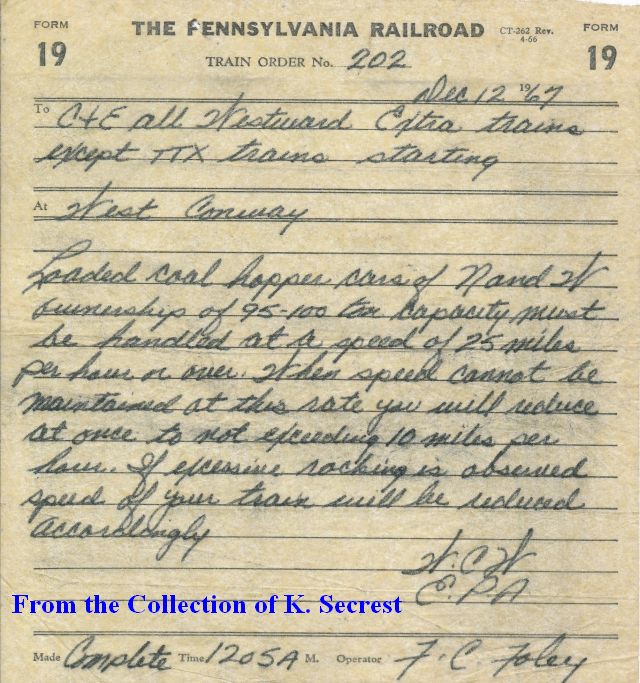 FORM 19
THE PENNSYLVANIA RAILROAD
CT-262 Rev. 4-66
FORM 19
TRAIN ORDER No. 202
Dec 12 1967
To C+E all Westward Extra trains
except TTX trains starting
At West Conway
Loaded coal hopper cars of N and W
ownership of 95-100 ton capacity must
be handled at a speed of 25 miles
per hour or over. When speed cannot be
maintained at this rate you will reduce
at once to not exceeding 10 miles per
hour. If excessive rocking is observed
speed of your train will be reduced
accordingly
W.C.W
C.P.A
From the Collection of K. Secrest
Made Complete Time 1205 A M. Operator F. C. Foley